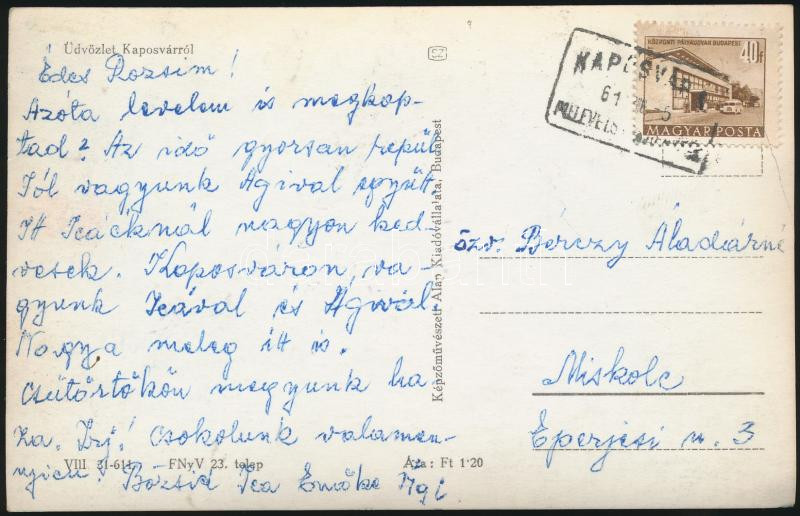 Üdvözlet Kaposvárról
Édes Rozsim!
Azóta levelem is megkap-
tad? Az idő gyorsan repül
Jól vagyunk Ágival együtt.
Itt Icáéknál nagyon ked-
vesek. Kaposváron va-
gyunk Icával és Ágival.
Nagyon meleg itt is.
Csütörtökön megyunk ha-
za. Irj! Csokolunk valamen-
nyien! Bözsid Ica Emőke Ági
VIII 31-611 FNyV 23. telep Ára: Ft 1·20
Képzőművészeti Alap Kiadóvállalata, Budapest
KÖZPONTI PÁLYAUDVAR BUDAPEST
40f
MAGYAR POSTA
KAPOSVÁR 1
61
özv. Bérczy Aladárné
Miskolc
Eperjesi u. 3